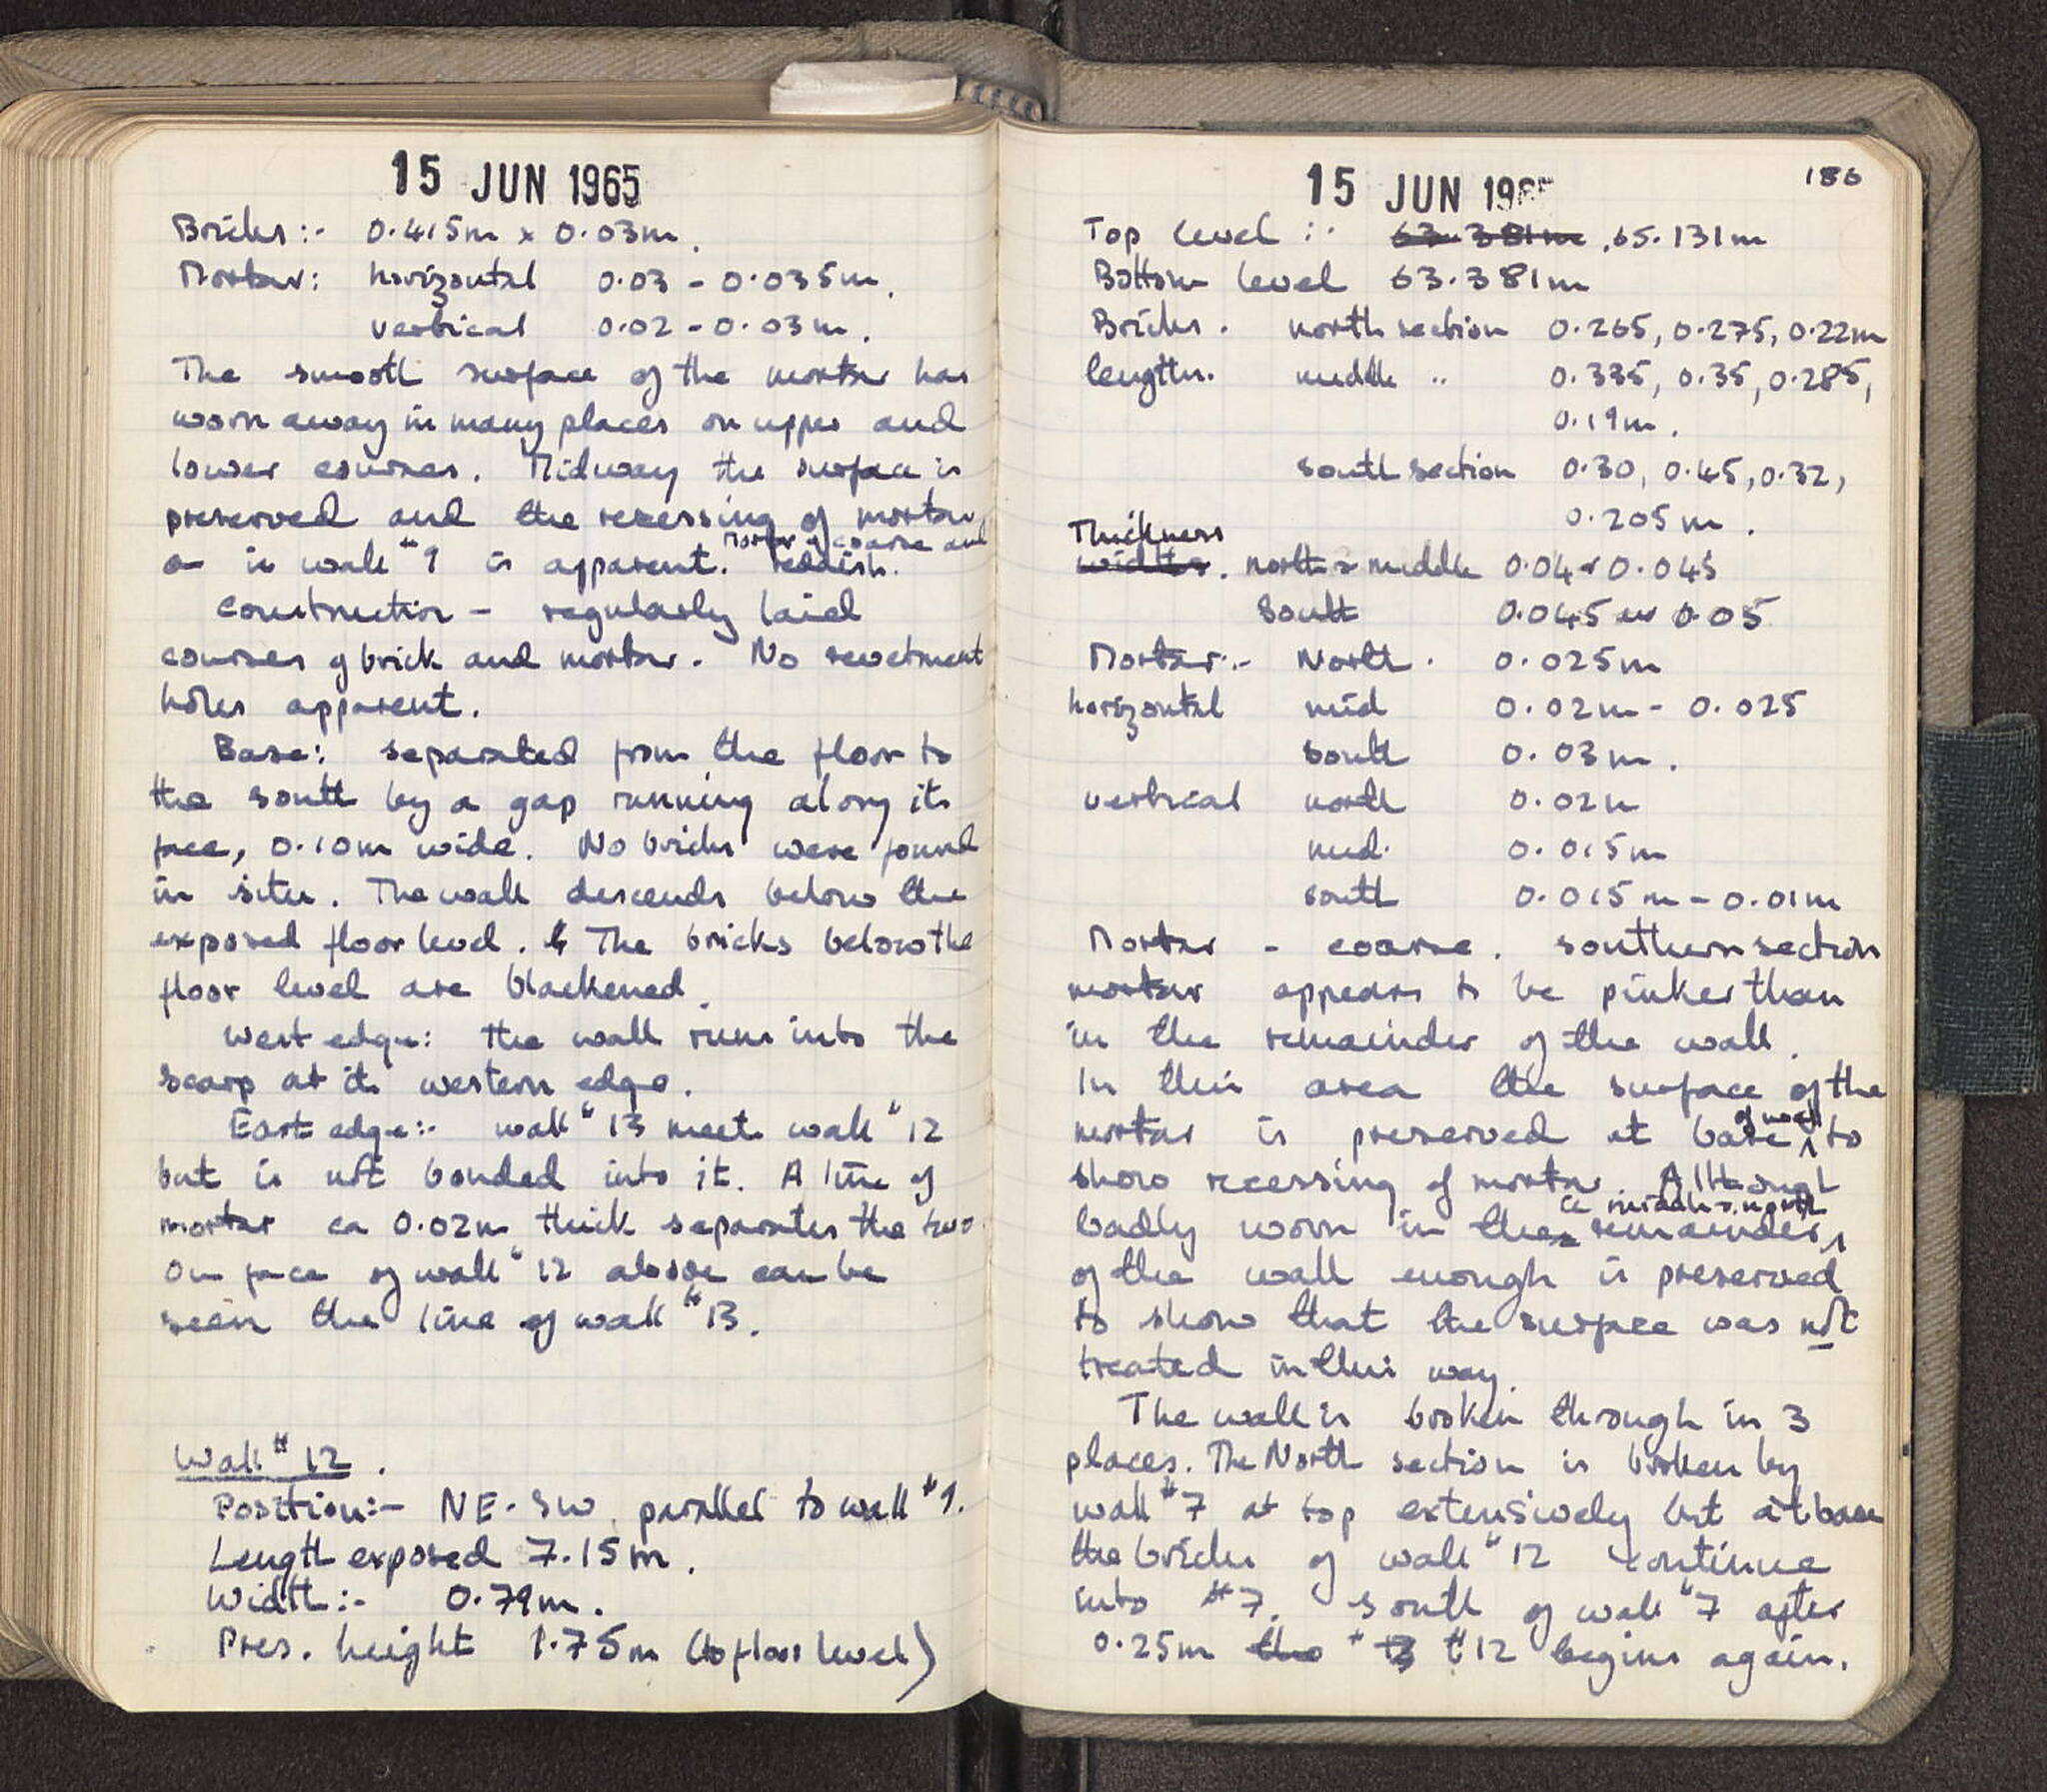 15 JUN 1965
Bricks:- 0.415m x 0.03m.
Mortar: horizontal 0.03 - 0.035m.
vertical 0.02 - 0.03m.
The smooth surface of the mortar has
worn away in many places on upper and
lower courses. Midway the surface is
preserved and the recessing of mortar,
Mortar is coarse and
as in wall #9 is apparent. reddish.
Construction - regularly laid
courses of brick and mortar. No revetment
holes apparent.
Base: separated from the floor to
the south by a gap running along its
face, 0.10m wide. No bricks were found
in situ. The wall descends below the
exposed floor level. The bricks below the
floor level are blackened.
West edge: the wall runs into the
scarp at its western edge.
East edge:- wall #13 meets wall #12
but is not bonded into it. A line of
mortar ca 0.02m thick separates the two.
On face of wall #12 above can be
seen the line of wall #13.
Wall #12.
Position:- NE-SW, parallel to wall #9.
Length exposed 7.15m.
Width:- 0.79m.
Pres. height 1.75m (to floor level)
15 JUN 1965
186
Top level :- 63.381m 65.131m
Bottom level 63.381m
Bricks. north section 0.265, 0.275, 0.22m
lengths. middle " 0.335, 0.35, 0.285,
0.19m.
south section 0.30, 0.45, 0.32,
0.205m.
Thickness
widths. north & middle 0.04 & 0.045
South 0.045 or 0.05
Mortar:- North. 0.025m
horizontal mid 0.02m - 0.025
south 0.03m.
vertical north 0.02m
mid. 0.015m
south 0.015m - 0.01m
Mortar - coarse. southern section
mortar appears to be pinker than
in the remainder of the wall.
In this area the surface of the
of wall
mortar is preserved at base to
show recessing of mortar. Although
ie middle & north
badly worn in the remainder,
of the wall enough is preserved
to show that the surface was not
treated in this way.
The wall is broken through in 3
places. The North section is broken by
wall #7 at top extensively but at base
the bricks of wall #12 continue
into #7. South of wall #7 after
0.25m the #13 #12 begins again.